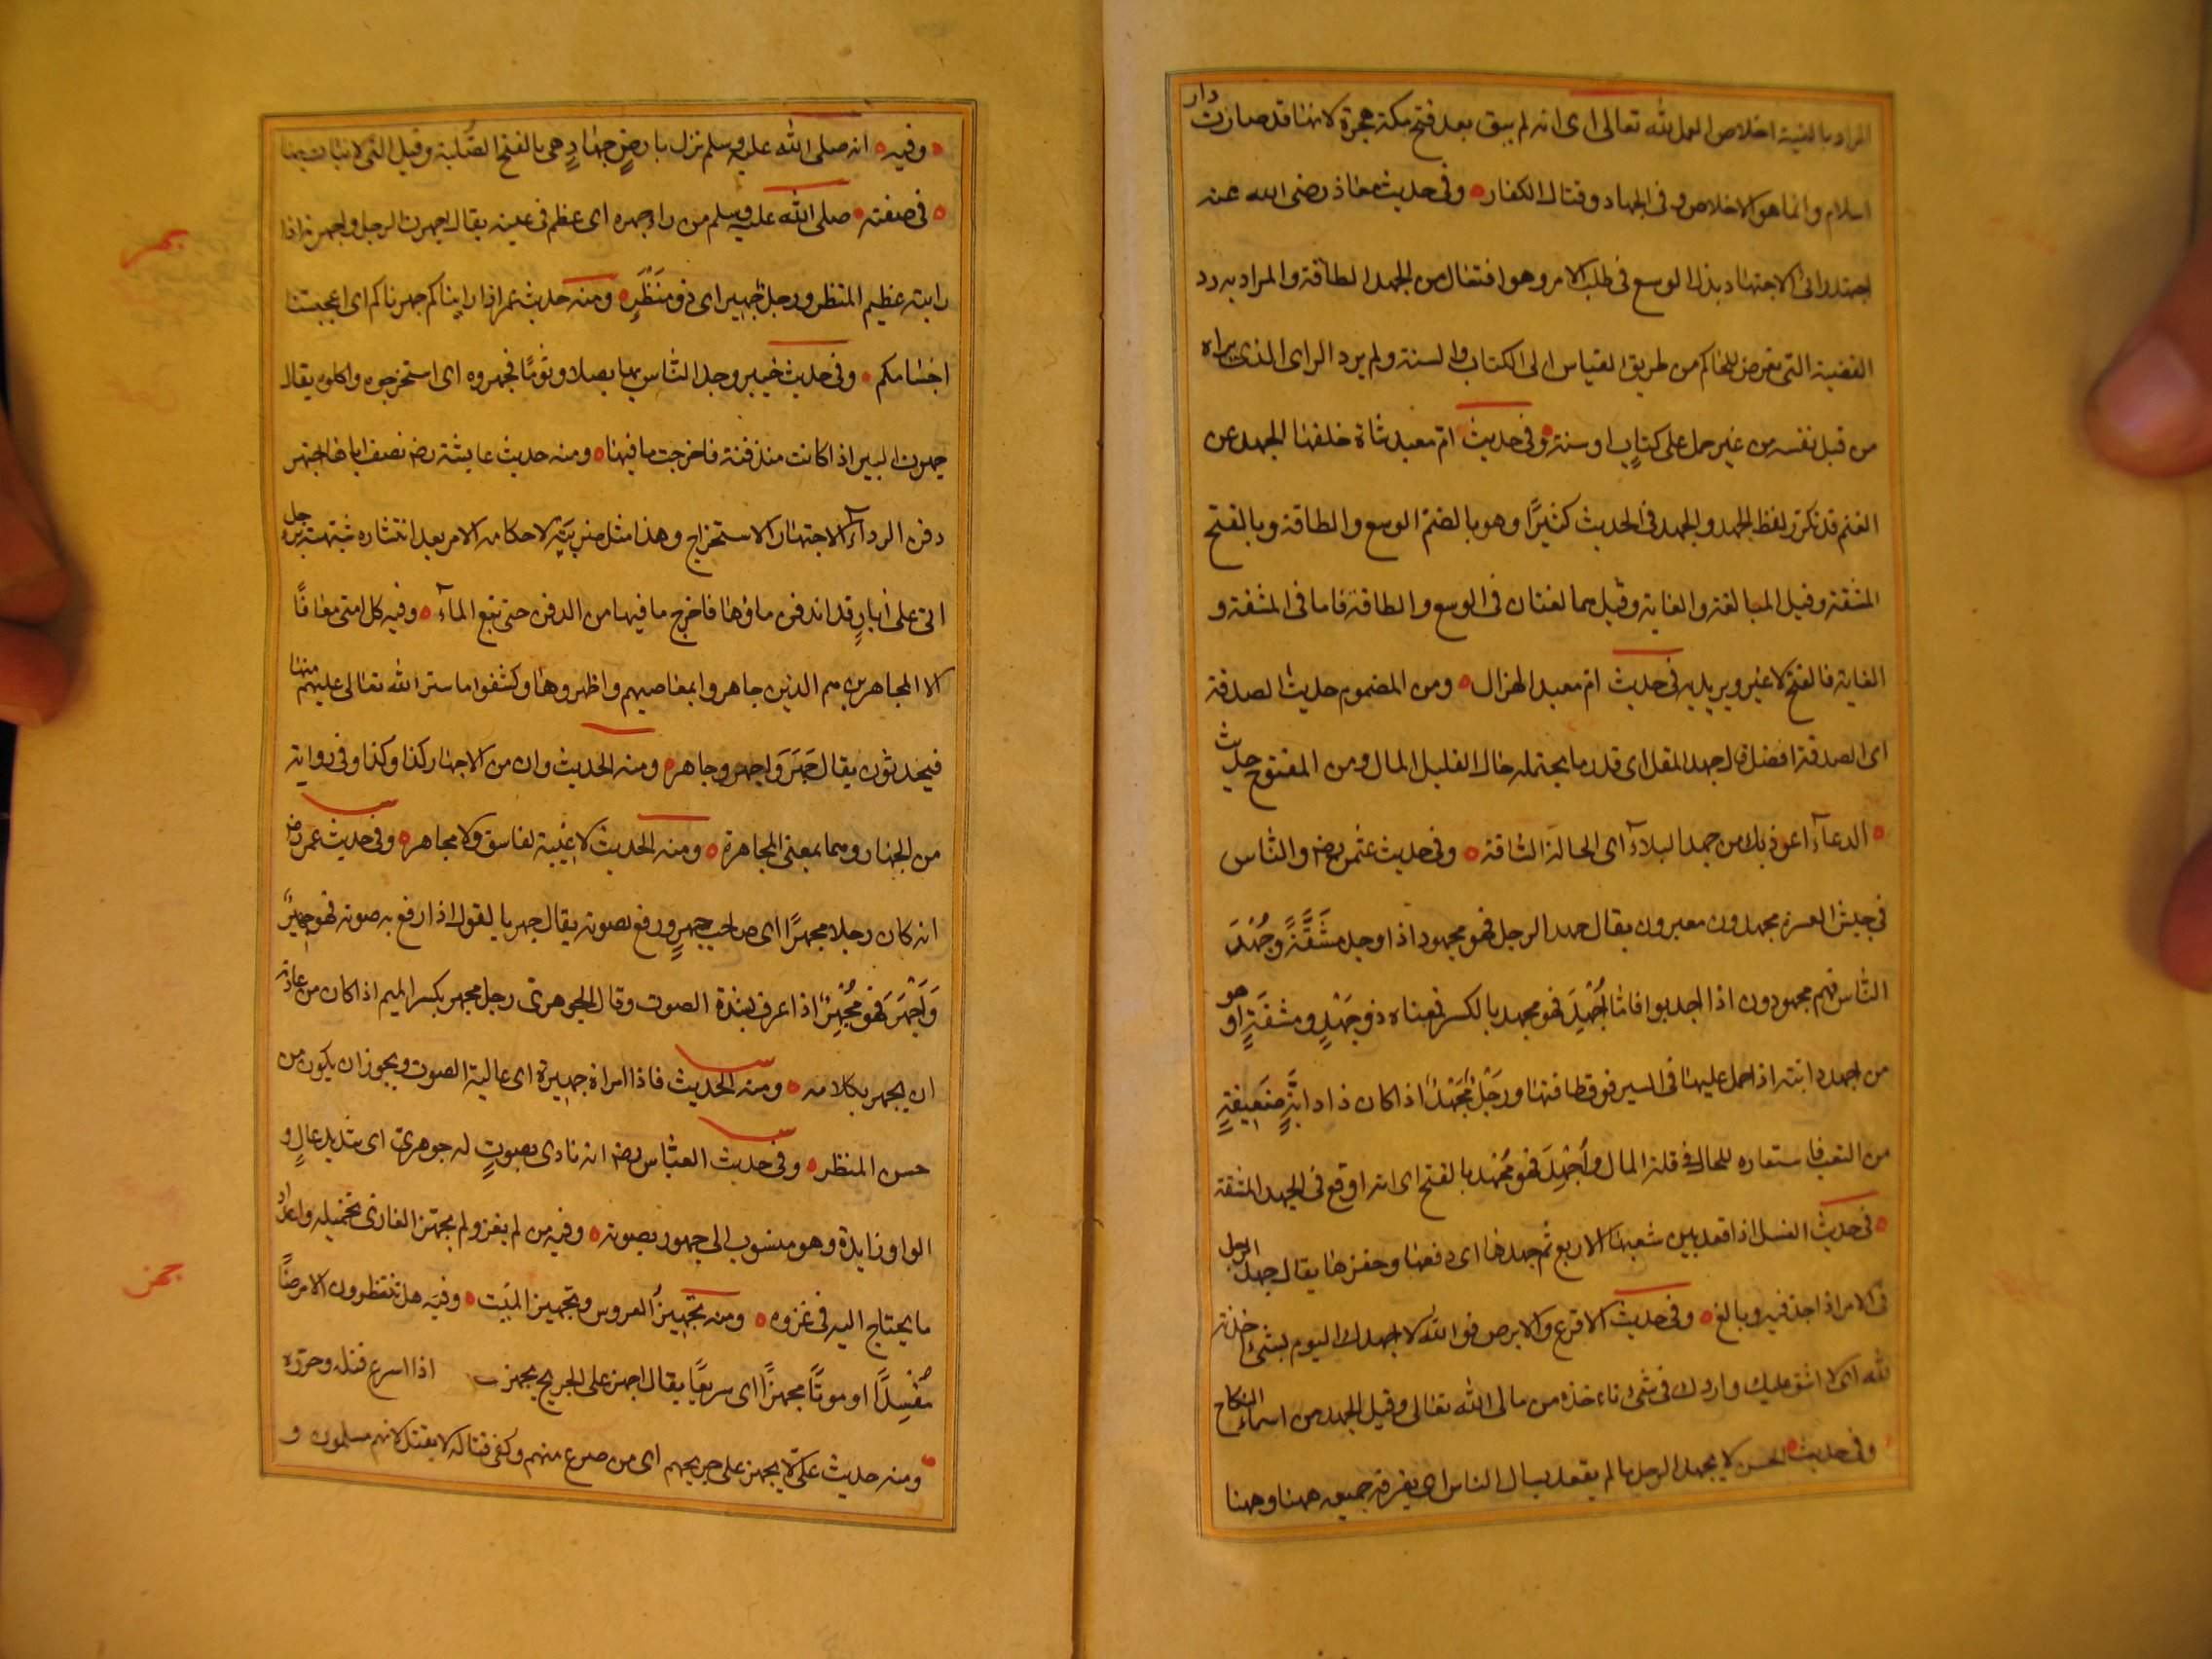 المراد بالنية اخلاص العمل لله تعالى اى انه لم يبق بعد فتح مكة هجرة لانها قد صارت دار
اسلام وانما هو الاخلاص فى الجهاد وقتال الكفار وفى حديث معاذ رضى الله عنه
اجتهد رائى الاجتهاد بذل الوسع فى طلب الامر وهو افتعال من الجهد الطاقة والمراد به رد
القضية التى تعرض للحاكم من طريق القياس الى الكتاب والسنة ولم يرد الراى الذى يراه
من قبل نفسه من غير حمل على كتابٍ او سنة وفى حديث ام معبد شاة خلفها الجهد عن
الغنم قد تكرر لفظ الجهد والجهد فى الحديث كثيرًا وهو بالضم الوسع والطاقة وبالفتح
المشقة وقيل المبالغة والغاية وقيل هما لغتان فى الوسع والطاقة فاما فى المشقة و
الغاية فالفتح لا غير ويريد به فى حديث ام معبد الهزال ومن المضموم حديث الصدقة
اى الصدقة افضل قال جهد المقل اى قدر ما يحتمله حال القليل المال ومن المفتوح حديث
الدعآء اعوذ بك من جهد البلآء اى الحالة الشاقة وفى حديث عثمن رضه والناس
فى جيش العسرة مجهدون معسرون يقال جهد الرجل فهو مجهود اذا وجد مَشَقَّةً وجُهِدَ
الناس فهم مجهودون اذا اجدبوا فامّا اُجْهِدَ فهو مجهد بالكسر فمعناه ذو جَهْدٍ ومشقةٍ او هو
من اجهد دابته اذا حمل عليها فى السير فوق طاقتها ورَجُلٌ مُجْهِدٌ اذا كان ذا دابَّةٍ ضَعِيفَةٍ
من التعب فاستعاره للحال فى قلة المال واُجْهِدَ فهو مُجْهَد بالفتح اى انه اوقع فى الجهد المشقة
فى حديث الغسل اذا قعد بين شعبها الاربع ثم جهدها اى دفعها وحفزها يقال جهد الرجل
فى الامر اذا جد فيه وبالغ وفى حديث الاقرع والابرص فوالله لا اجهدك اليوم بشئ اخذته
لله اى لا اشق عليك واردك فى شئ تاخذه من مالى الله تعالى وقيل الجهد من اسماء النكاح
وفى حديث الحسن لا يجهد الرجل ماله ثم يقعد يسال الناس اى يفرقه جميعه ههنا وههنا
وفيه انه صلى الله عليه وسلم نزل بارضٍ جهادٍ هى بالفتح الصُّلبة وقيل التى لا نبات بها
فى صفته صلى الله عليه وسلم من راه جهره اى عظم فى عينه يقال جهرت الرجل واجهرته اذا
رايته عظيم المنظر ورجل جهير اى ذو مَنْظَرٍ ومنه حديث عمر اذا رايناكم جهرناكم اى اعجبتنا
اجسامكم وفى حديث خيبر وجد الناس بها بصلا وثومًا فجهروه اى استخرجوه واكلوه يقال
جهرت البير اذا كانت مندفنة فاخرجت ما فيها ومنه حديث عايشة رضه تصف اباها اجتهر
دفن الرواء الاجتهار الاستخراج وهذا مثل ضربته لاحكامه الامر بعد انتشاره شبهته برجل
اتى على ابارٍ قد اندفن ماؤها فاخرج ما فيها من الدفن حتى نبع المآء وفيه كل امتى معافًا
الا المجاهرين هم الذين جاهروا بمعاصيهم واظهروها وكشفوا ما ستر الله تعالى عليهم منها
فيحدثون يقال جَهَرَ واجهر وجاهر ومنه الحديث وان من الاجهار كذا وكذا وفى رواية
من الجهار وهما بمعنى المجاهرة ومنه الحديث لا غيبة لفاسق ولا مجاهر وفى حديث عمر رضه
انه كان رجلا مجهرًا اى صاحب جهرٍ ورفع لصوته يقال جهر بالقول اذا رفع به صوته فهو جهيرٌ
وَاَجْهَرَ فهو مُجْهِرٌ اذا عرف بشدة الصوت وقال الجوهرى رجل مجهر بكسر الميم اذا كان من عادته
ان يجهر بكلامه ومنه الحديث فاذا امراة جهيرة اى عالية الصوت ويجوز ان يكون من
حسن المنظر وفى حديث العباس رضه انه نادى بصوتٍ له جوهرى اى شديد عالٍ و
الواو زايدة وهو منسوب الى جهور بصوته وفيه من لم يغز ولم يجهز الغازى تحميله واعداد
ما يحتاج اليه فى غزوه ومنه تجهيز العروس وتجهيز الميت وفيه هل تنتظرون الا مرضًا
مُفْسِدًا او موتًا مجهزًا اى سريعًا يقال اجهز على الجريح يجهز اذا اسرع قتله وحرّره
ومنه حديث علىّ لا يجهز على جريحهم اى من صرع منهم وكفى قتاله لا يقتل لانهم مسلمون و
جهر
جهز